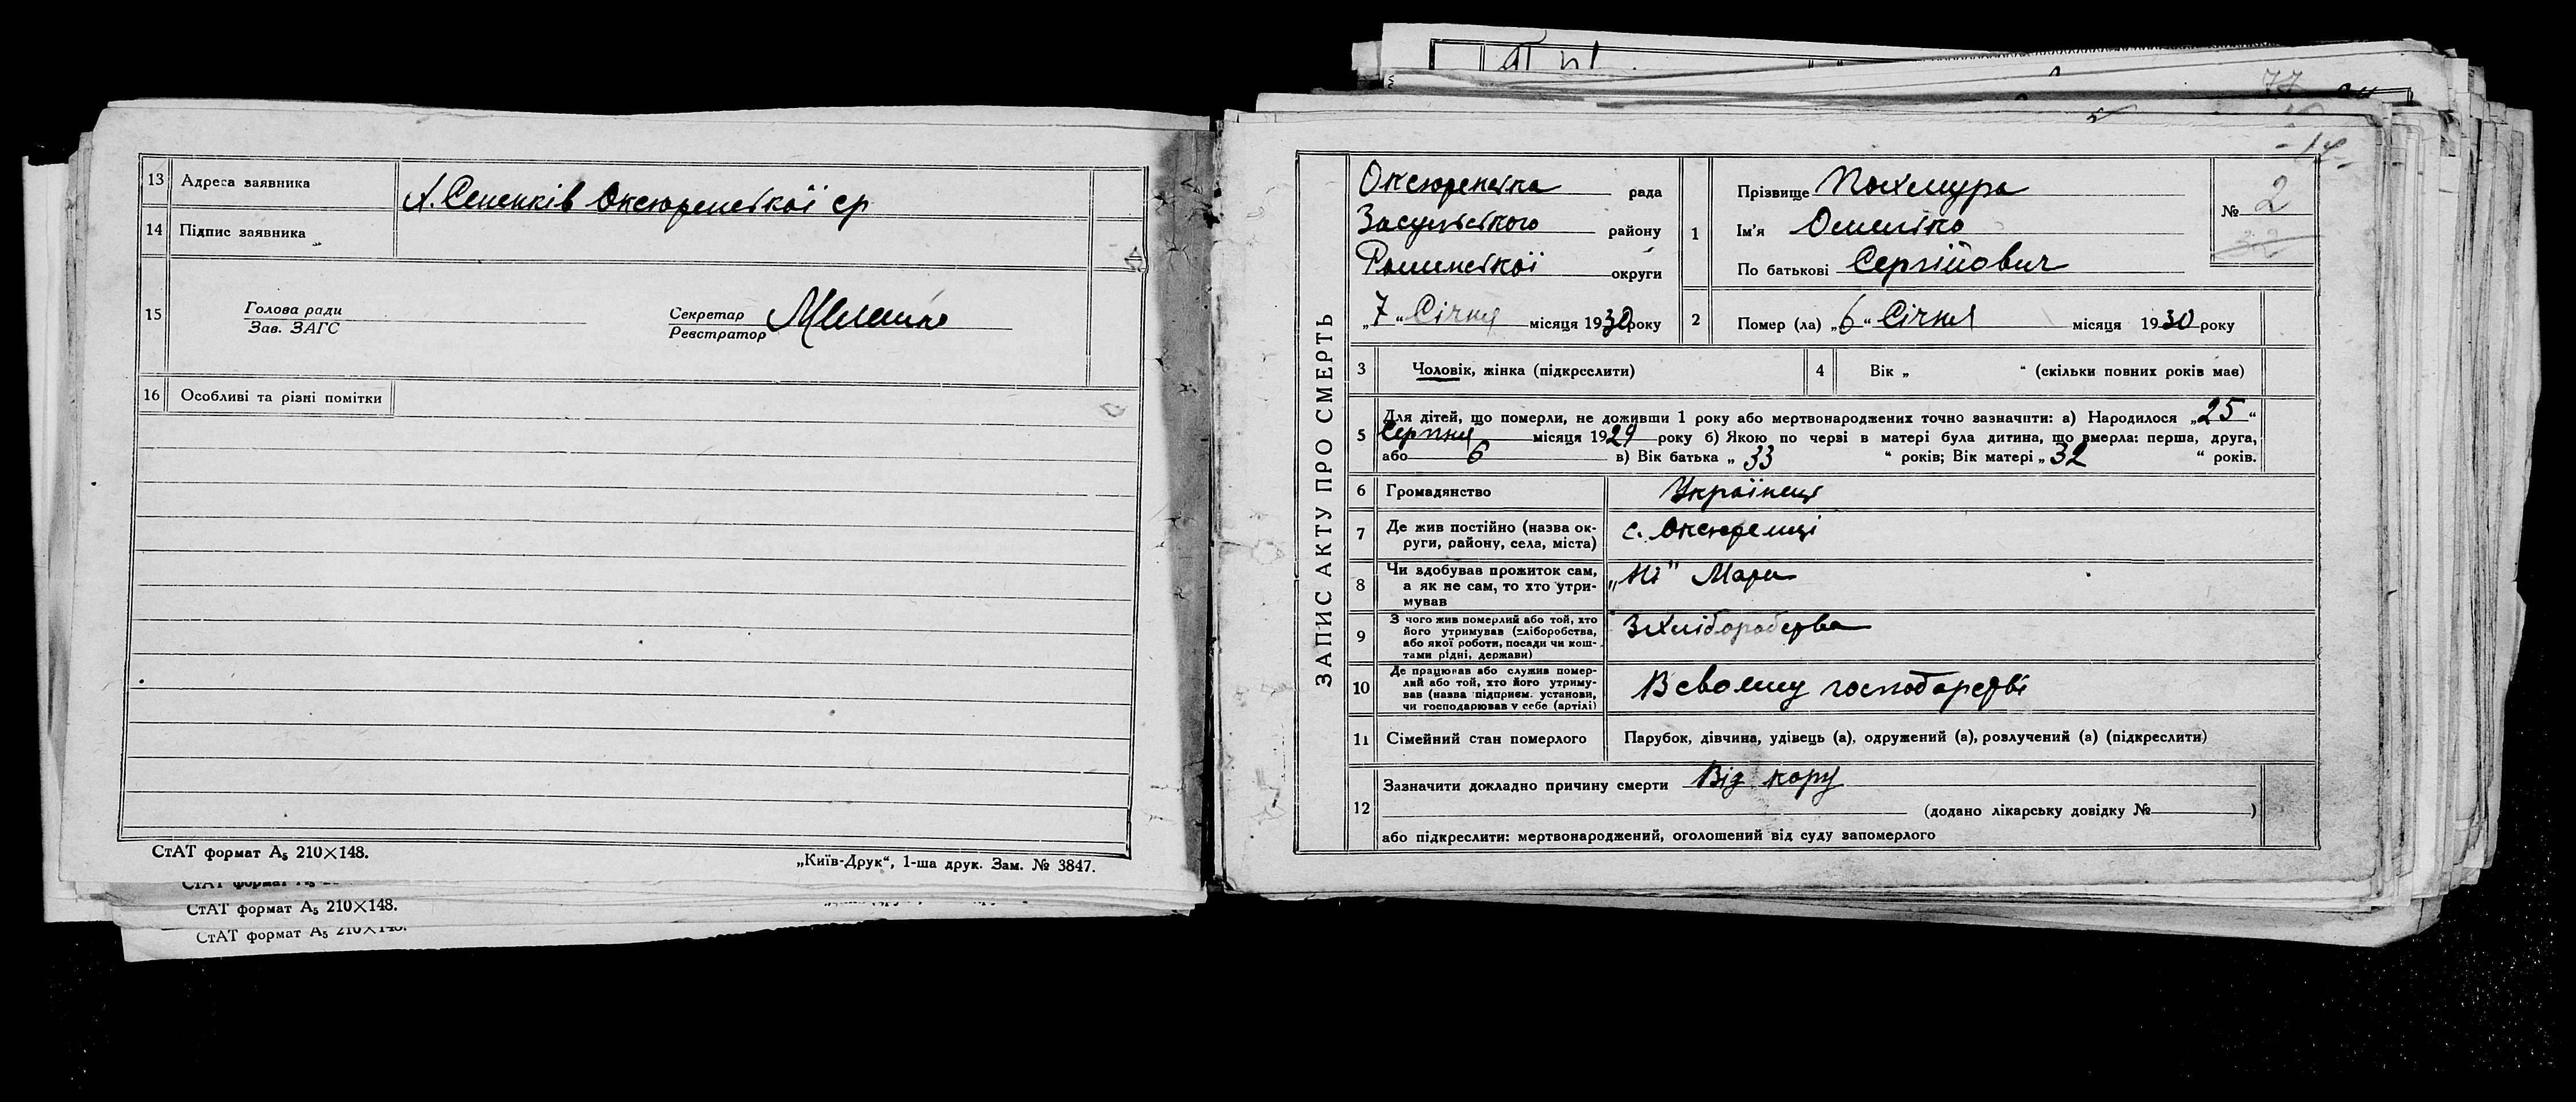 13 Адреса заявника
х. Сененків Оксюренської ср
14 Підпис заявника
15 Голова ради
Зав. ЗАГС
Секретар
Реєстратор
16 Особливі та різні помітки
СтАТ формат А5 210×148.
„Київ-Друк“, 1-ша друк. Зам. № 3847.
СтАТ формат А5
СтАТ формат А5 210×148.
СтАТ формат А5 210×148.
77
14
ЗАПИС АКТУ ПРО СМЕРТЬ
Оксюренська рада
Засульського району
Роменської округи
„7“ Січня місяця 1930 року
1 Прізвище Похмура
Ім'я Омелько
По батькові Сергійович
№ 2
32
2 Помер (ла) „6“ Січня місяця 1930 року
3 Чоловік, жінка (підкреслити)
4 Вік „ “ (скільки повних років має)
5 Для дітей, що померли, не доживши 1 року або мертвонароджених точно зазначити: а) Народилося „25“
Серпня місяця 1929 року б) Якою по черві в матері була дитина, що вмерла: перша, друга,
або 6 в) Вік батька „33“ років; Вік матері „32“ років.
6 Громадянство Українець
7 Де жив постійно (назва ок-
руги, району, села, міста) с. Оксюренці
8 Чи здобував прожиток сам,
а як не сам, то хто утри-
мував „Ні“ Мати
9 З чого жив померлий або той, хто
його утримував (хліборобства,
або якої роботи, посади чи кош-
тами рідні, держави) З хліборобства
10 Де працював або служив помер-
лий або той, хто його утриму-
вав (назва підприєм. установи,
чи господарював у себе (артілі) В своєму господарстві
11 Сімейний стан померлого Парубок, дівчина, удівець (а), одружений (а), розлучений (а) (підкреслити)
12 Зазначити докладно причину смерти Від кору
(додано лікарську довідку № )
або підкреслити: мертвонароджений, оголошений від суду запомерлого